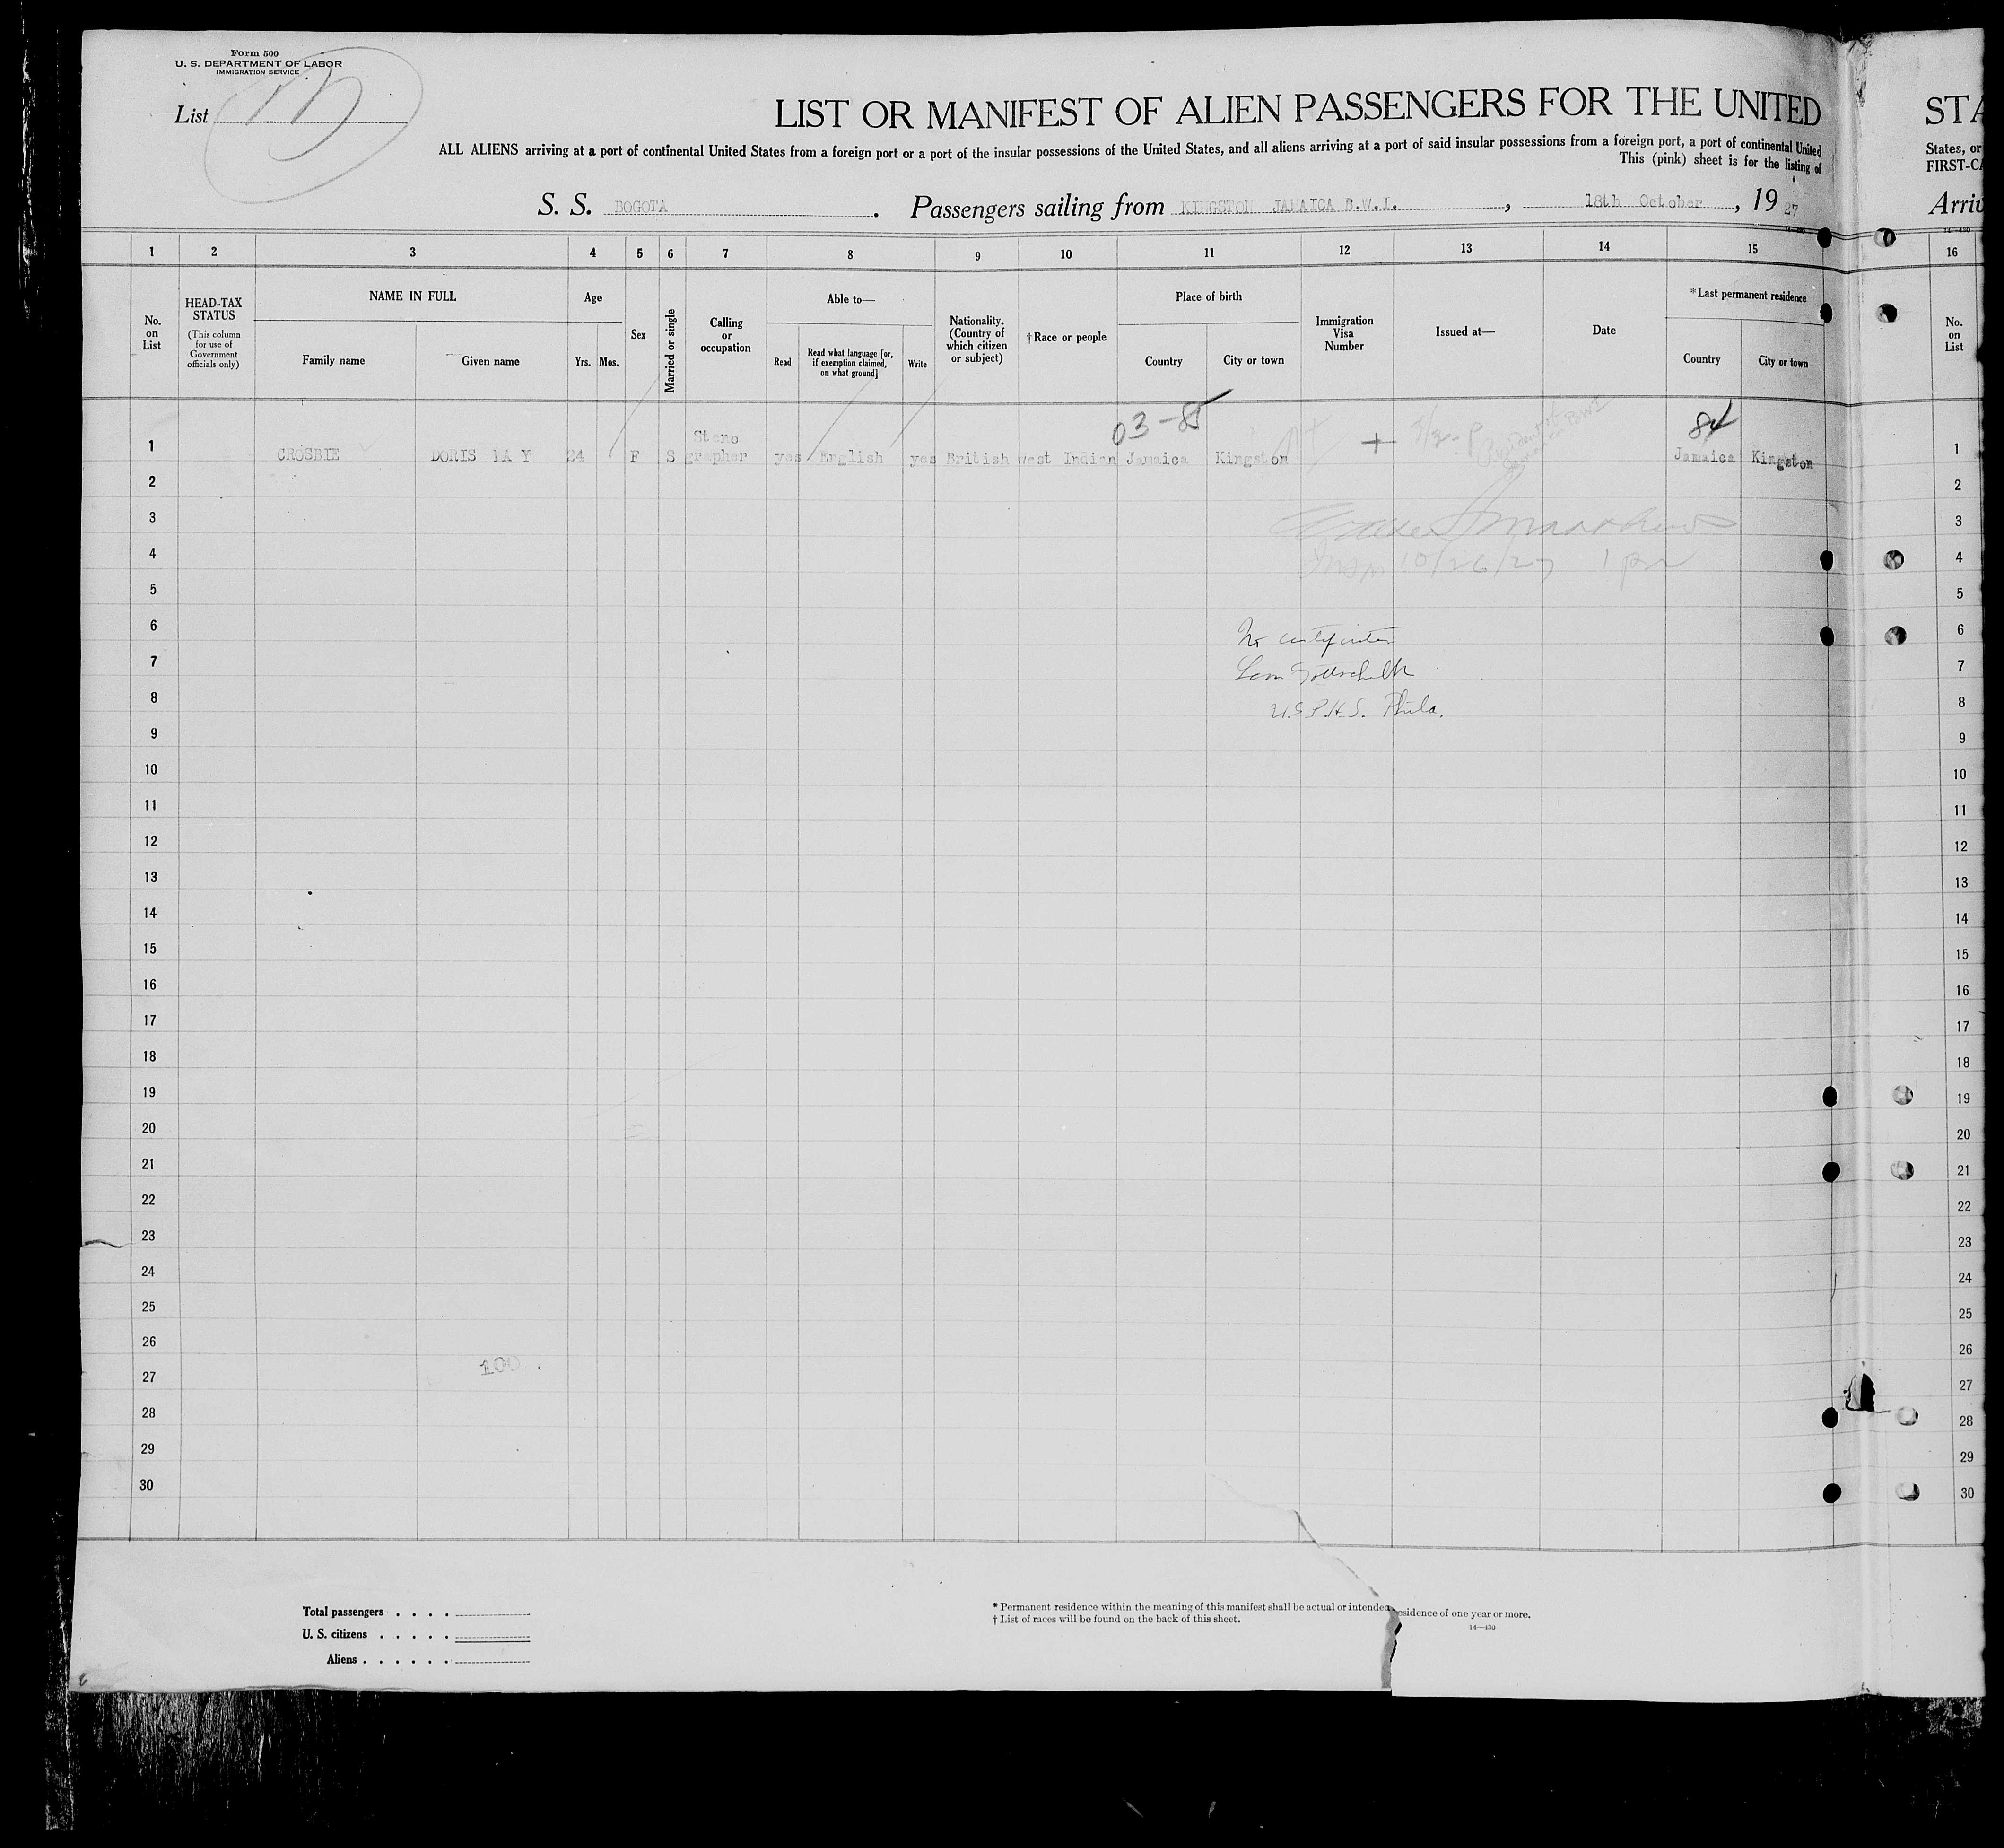 Form 500
U. S. DEPARTMENT OF LABOR
IMMIGRATION SERVICE
List
LIST OR MANIFEST OF ALIEN PASSENGERS FOR THE UNITED
STA
ALL ALIENS arriving at a port of continental United States from a foreign port or a port of the insular possessions of the United States, and all aliens arriving at a port of said insular possessions from a foreign port, a port of continental United
States, or
This (pink) sheet is for the listing of
FIRST-CA
S. S. BOGOTA. Passengers sailing from KINGSTON JAMAICA B.W.I., 18th October, 1927
Arriv
1 2 3 4 5 6 7 8 9 10 11 12 13 14 15 16
No. on List
HEAD-TAX STATUS
(This column for use of Government officials only)
NAME IN FULL
Family name
Given name
Age
Yrs. Mos.
Sex
Married or single
Calling or occupation
Able to—
Read
Read what language [or, if exemption claimed, on what ground]
Write
Nationality. (Country of which citizen or subject)
†Race or people
Place of birth
Country
City or town
Immigration Visa Number
Issued at—
Date
*Last permanent residence
Country
City or town
No. on List
03-85
84
1 CROSBIE DORIS MAY 24 F S Steno grapher yes English yes British west Indian Jamaica Kingston + Jamaica Kingston 1
2 2
3 3
10/26/27 1 pm
4 4
5 5
6 6
No certificates
7 7
8 8
U.S.P.H.S. Phila.
9 9
10 10
11 11
12 12
13 13
14 14
15 15
16 16
17 17
18 18
19 19
20 20
21 21
22 22
23 23
24 24
25 25
26 26
100
27 27
28 28
29 29
30 30
Total passengers . . . .
U. S. citizens . . . . .
Aliens . . . . . .
* Permanent residence within the meaning of this manifest shall be actual or intended residence of one year or more.
† List of races will be found on the back of this sheet.
14—430